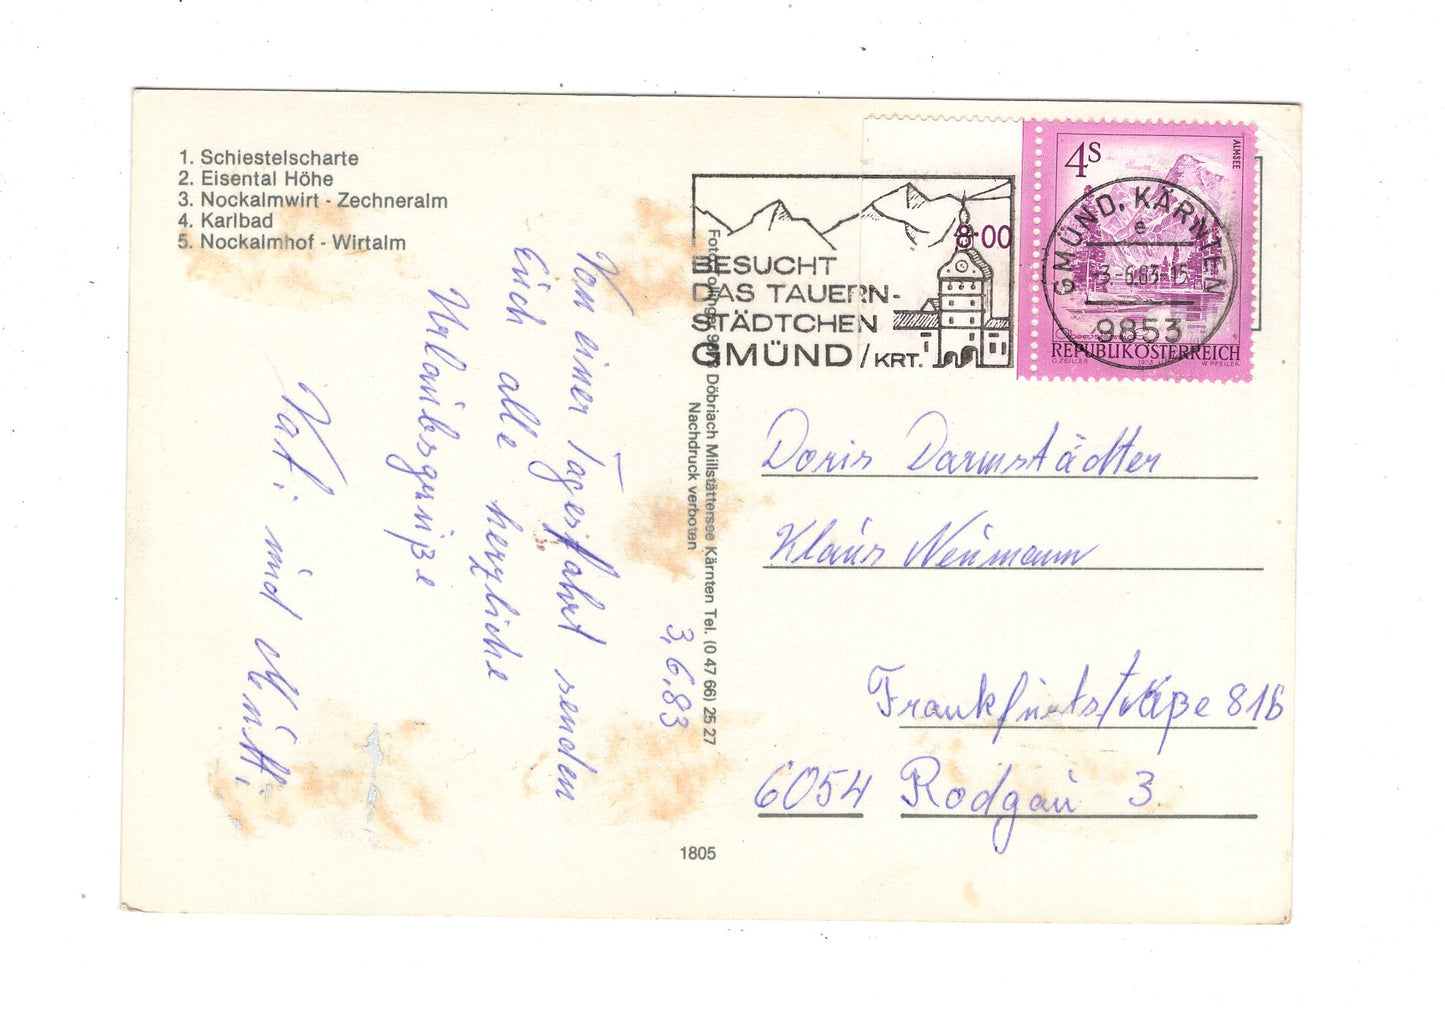 1. Schiestelscharte
2. Eisental Höhe
3. Nockalmwirt - Zechneralm
4. Karlbad
5. Nockalmhof - Wirtalm
Von einer Tagesfahrt senden
Euch alle herzliche
Urlaubsgrüße
Vati und Mutti
3.6.83
Döbriach Millstättersee Kärnten Tel. (0 47 66) 25 27
Nachdruck verboten
1805
BESUCHT
DAS TAUERN-
STÄDTCHEN
GMÜND/KRT.
8·00
4S
ALMSEE
REPUBLIK ÖSTERREICH
O. ZEILLER 1973 W. PFEILER
GMÜND, KÄRNTEN
e
-3.-6.83-15
9853
Doris Darmstädter
Klaus Neumann
Frankfurtstraße 816
6054 Rodgau 3